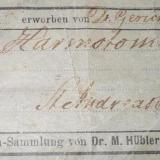 erworben von Dr. Gericke
Harmotom
St. Andreasb
n-Sammlung von Dr. M. Hübler